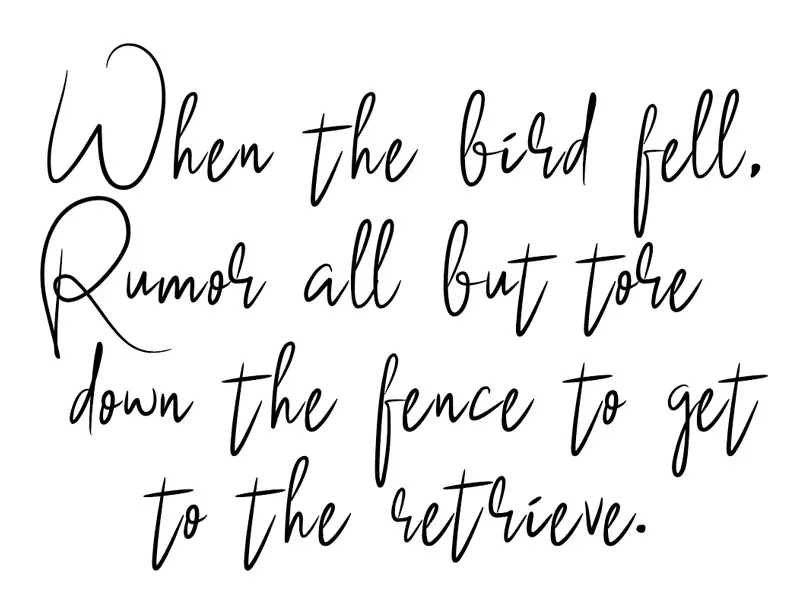 When the bird fell,
Rumor all but tore
down the fence to get
to the retrieve.